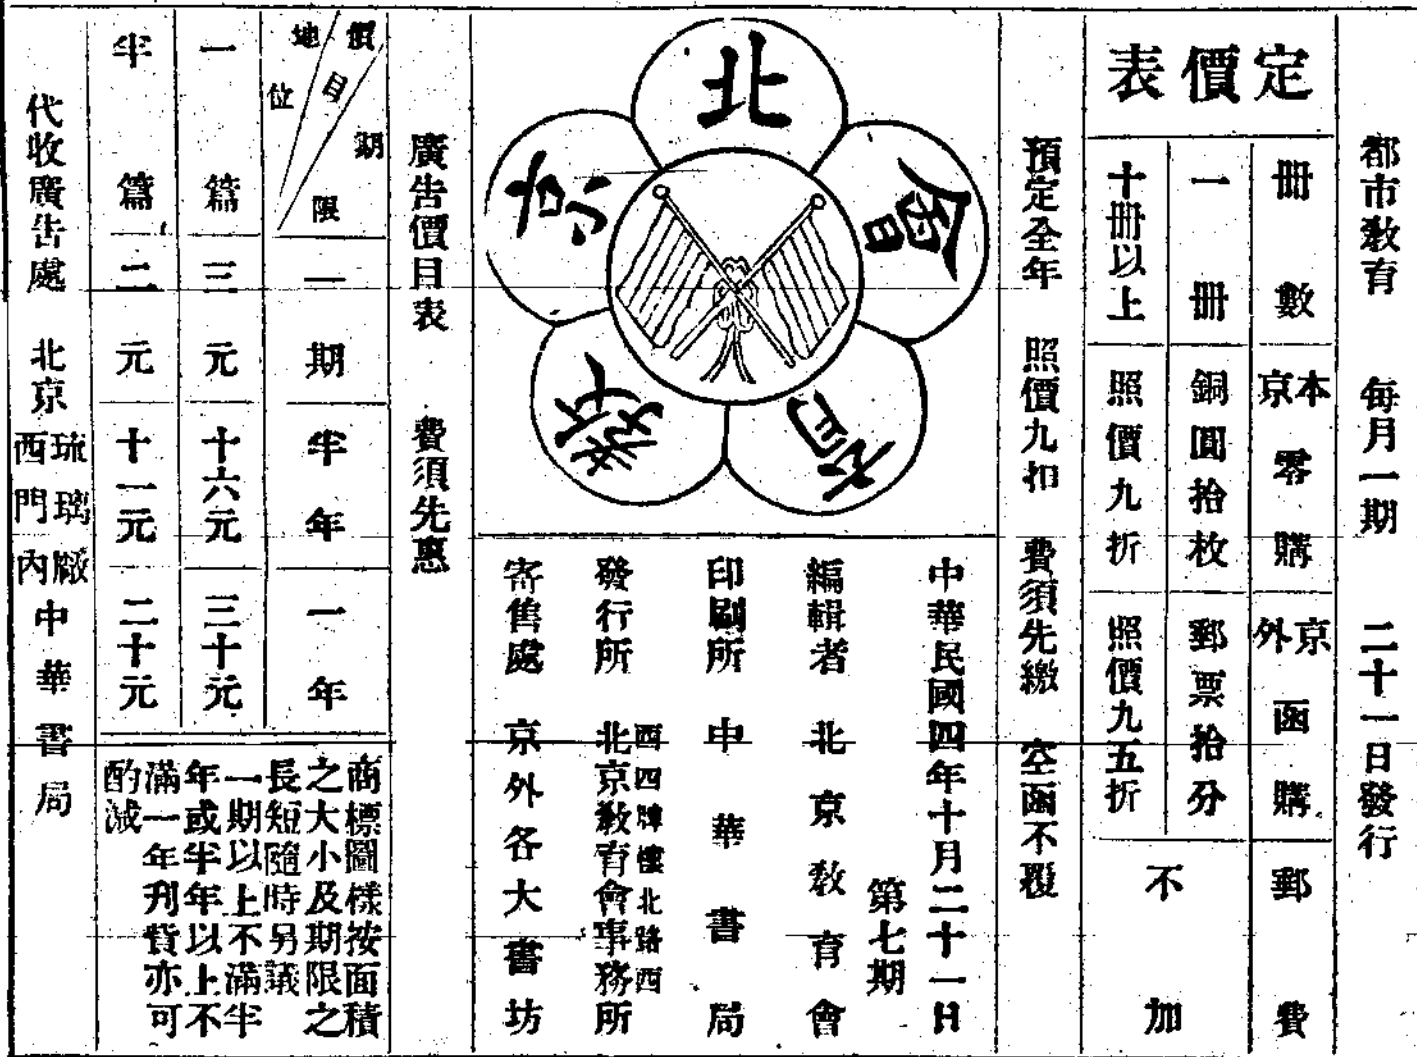 都市教育 每月一期 二十一日發行
定價表
冊數 本京零購 京外函購 郵費
一冊 銅圓拾枚 郵票拾分 不加
十冊以上 照價九折 照價九五折
預定全年 照價九扣 費須先繳 空函不覆
北京教育會
中華民國四年十月二十一日
第七期
編輯者 北京教育會
印刷所 中華書局
發行所 西四牌樓北路西 北京教育會事務所
寄售處 京外各大書坊
廣告價目表 費須先惠
價目 期限 地位
一期 半年 一年
一篇 三元 十六元 三十元
半篇 二元 十一元 二十元
商標圖樣按面積
之大小及期限之
長短隨時另議
一期以上不滿半
年或半年以上不
滿一年刋費亦可
酌減
代收廣告處 北京琉璃廠西門內中華書局